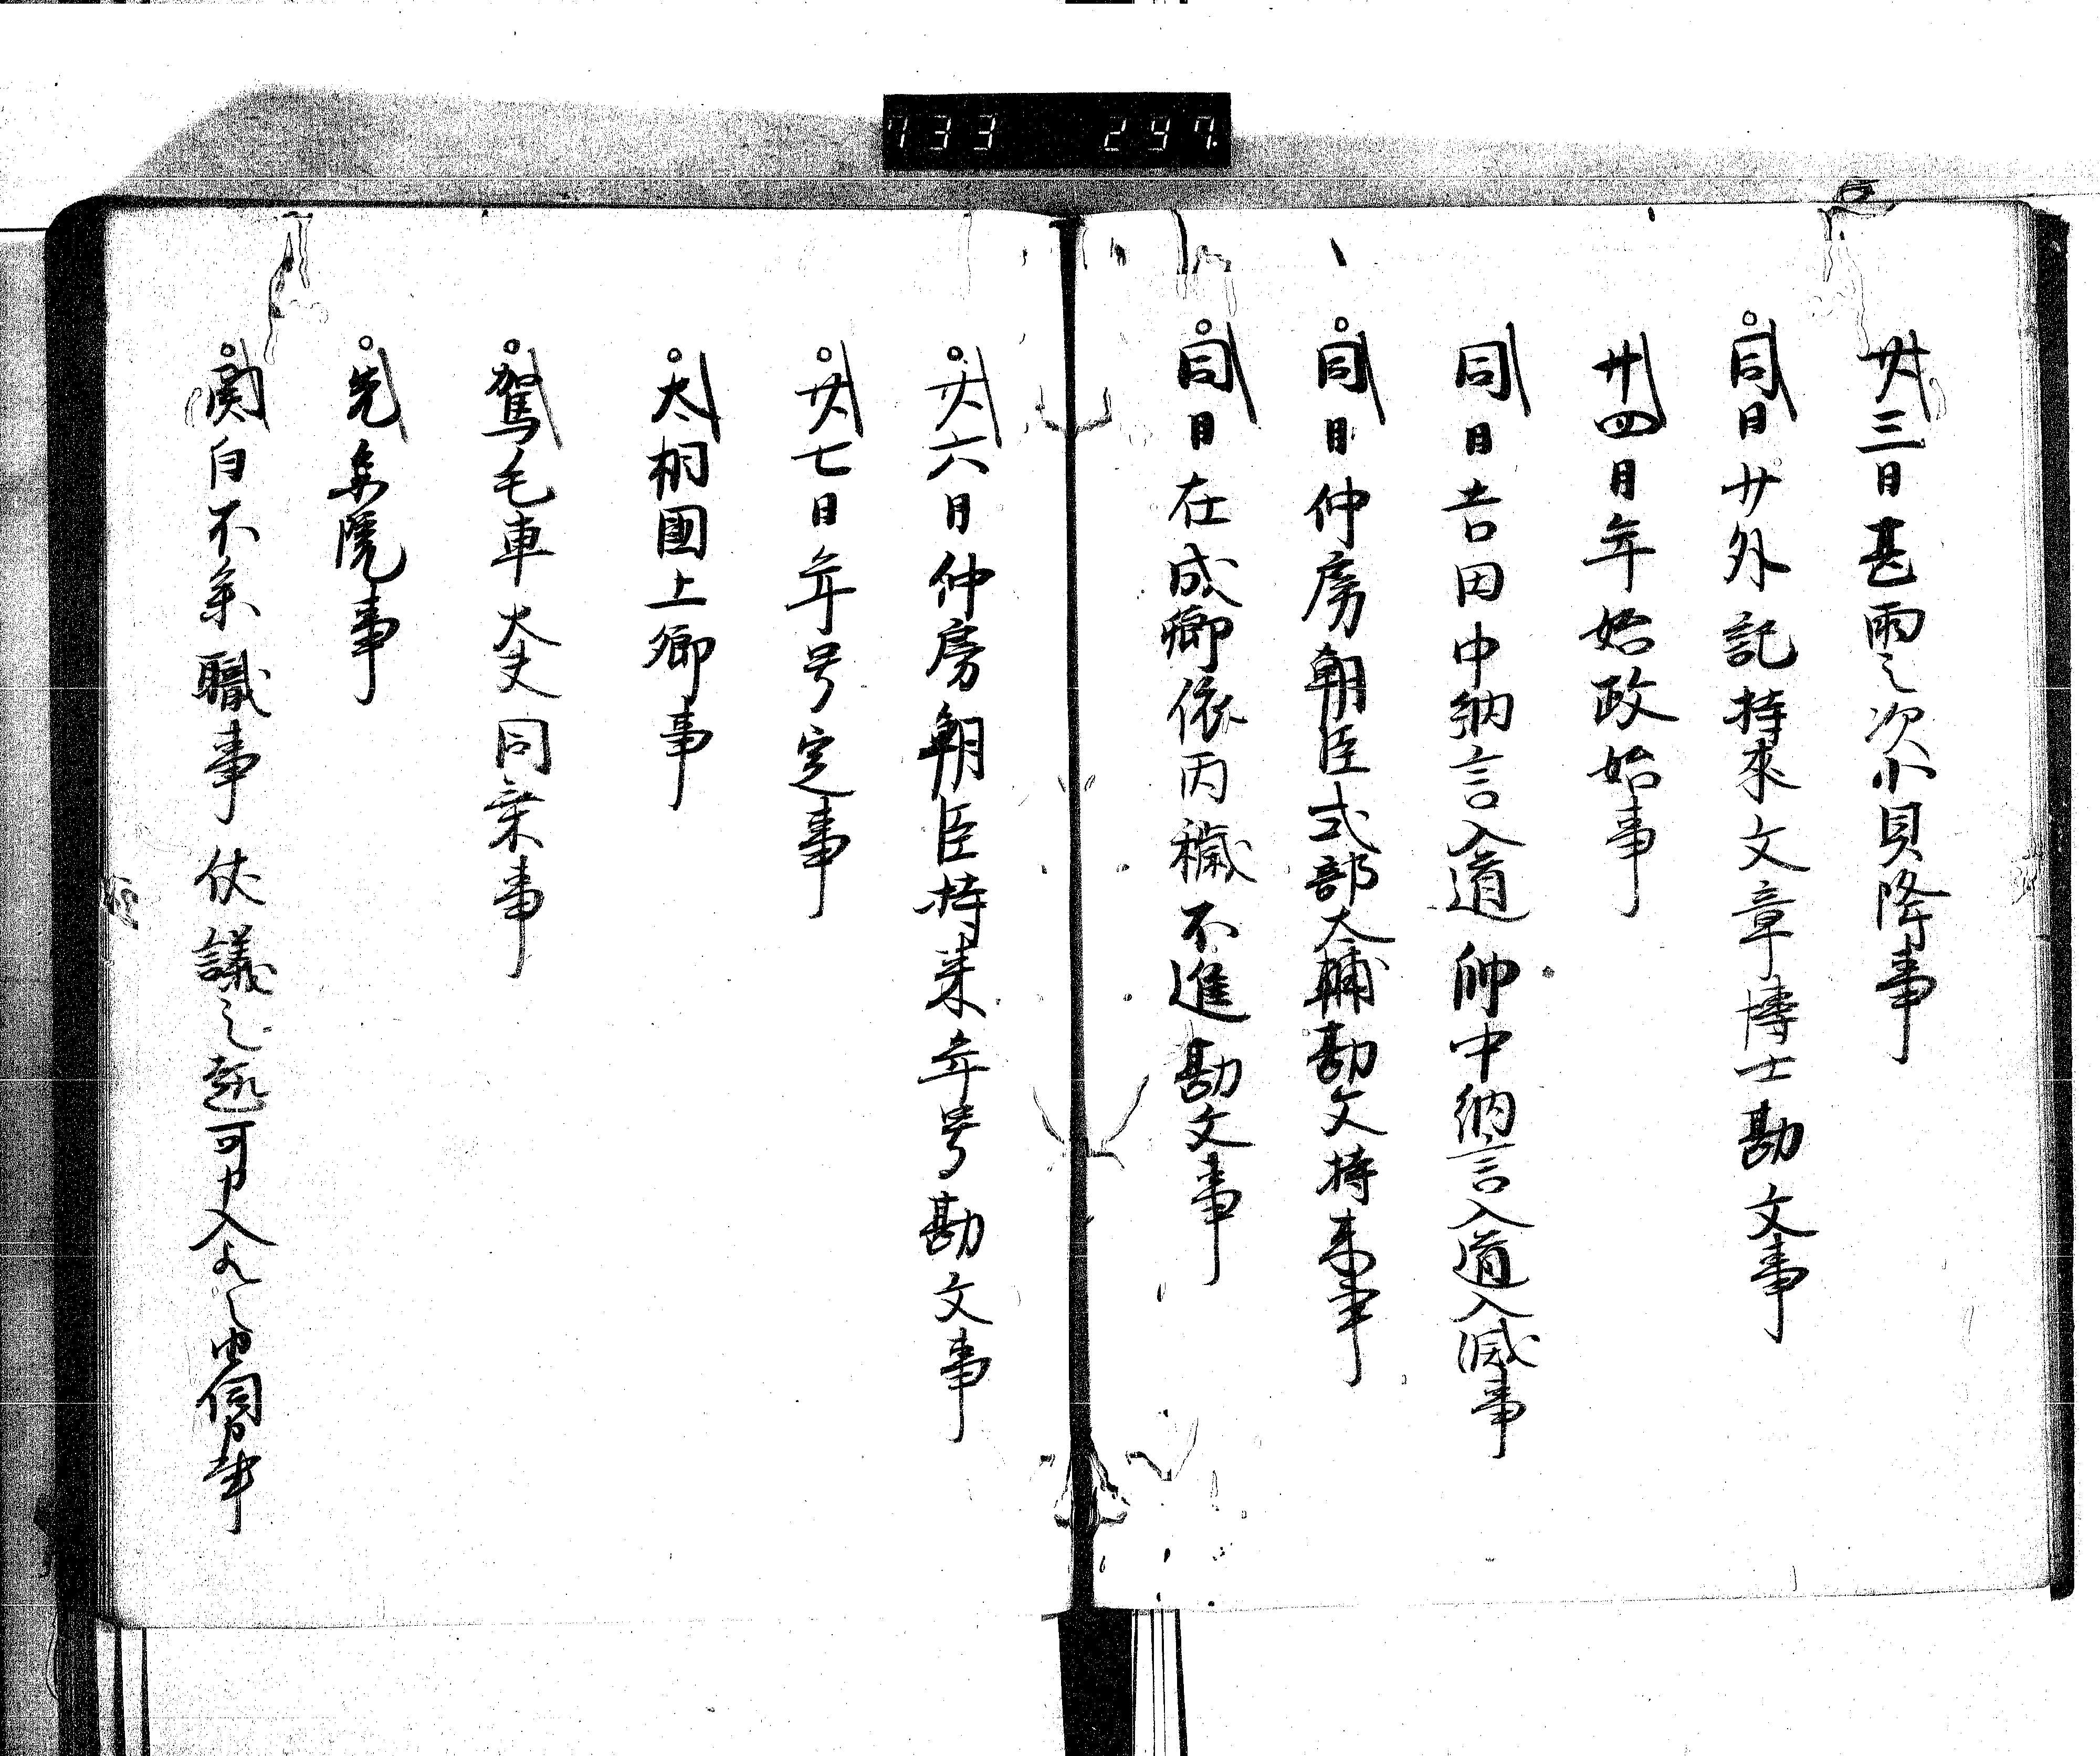 733 297
廿三日甚雨之次小貝降事
同日廿外記持来文章博士勘文事
廿四日年始政始事
同日吉田中納言入道帥中納言入道入滅事
同日仲房朝臣式部大輔勘文持来事
同日在成卿依丙穢不進勘文事
廿六日仲房朝臣持来年号勘文事
廿七日年号定事
太相国上卿事
駕毛車大夫同車事
先参院事
関白不参職事仗議之趣可申入之由伺申事